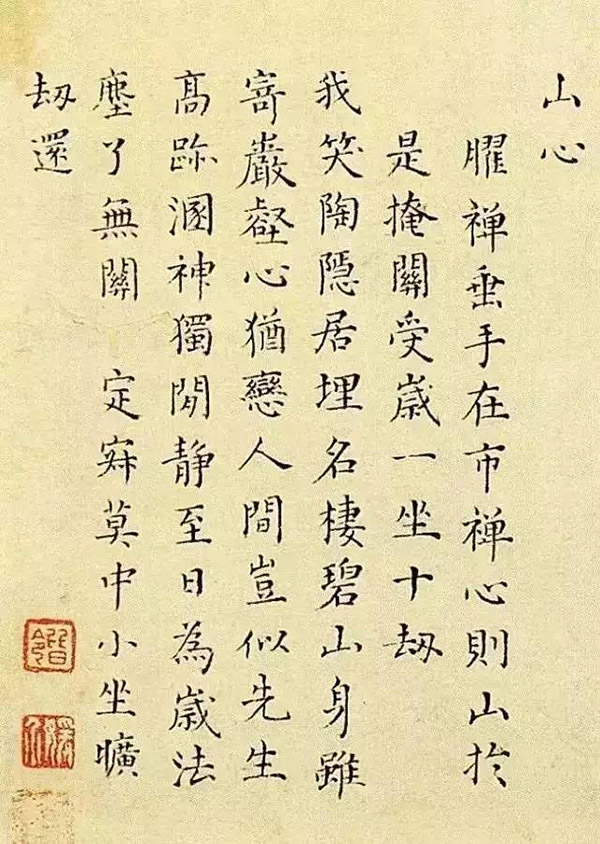 山心
臞禅垂手在市禅心則山於
是掩關受歲一坐十劫
我笑陶隱居埋名棲碧山身雖
寄巖壑心猶戀人間豈似先生
高跡溷神獨閒静至日為歲法
塵了無關　定寂莫中小坐曠
劫還